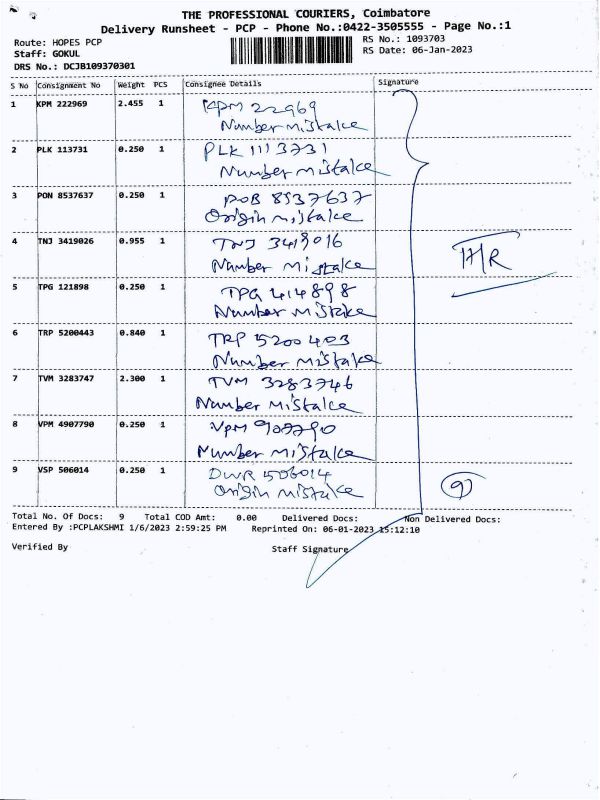 THE PROFESSIONAL COURIERS, Coimbatore
Delivery Runsheet - PCP - Phone No.:0422-3505555 - Page No.:1
Route: HOPES PCP
Staff: GOKUL
DRS No.: DCJB109370301
RS No.: 1093703
RS Date: 06-Jan-2023
S No Consignment No Weight PCS Consignee Details Signature
1 KPM 222969 2.455 1 KPM 22969
Number Mistake
2 PLK 113731 0.250 1 PLK 1113731
Number Mistake
3 PON 8537637 0.250 1 POB 8537637
Origin Mistake
4 TNJ 3419026 0.955 1 TNJ 3419016
Number Mistake
5 TPG 121898 0.250 1 TPG 414898
Number Mistake
6 TRP 5200443 0.840 1 TRP 5200403
Number Mistake
7 TVM 3283747 2.300 1 TVM 3283746
Number Mistake
8 VPM 4907790 0.250 1 VPM 907790
Number Mistake
9 VSP 506014 0.250 1 DWR 506014
Origin Mistake
9
Total No. Of Docs: 9 Total COD Amt: 0.00 Delivered Docs: Non Delivered Docs:
Entered By :PCPLAKSHMI 1/6/2023 2:59:25 PM Reprinted On: 06-01-2023 15:12:10
Verified By Staff Signature